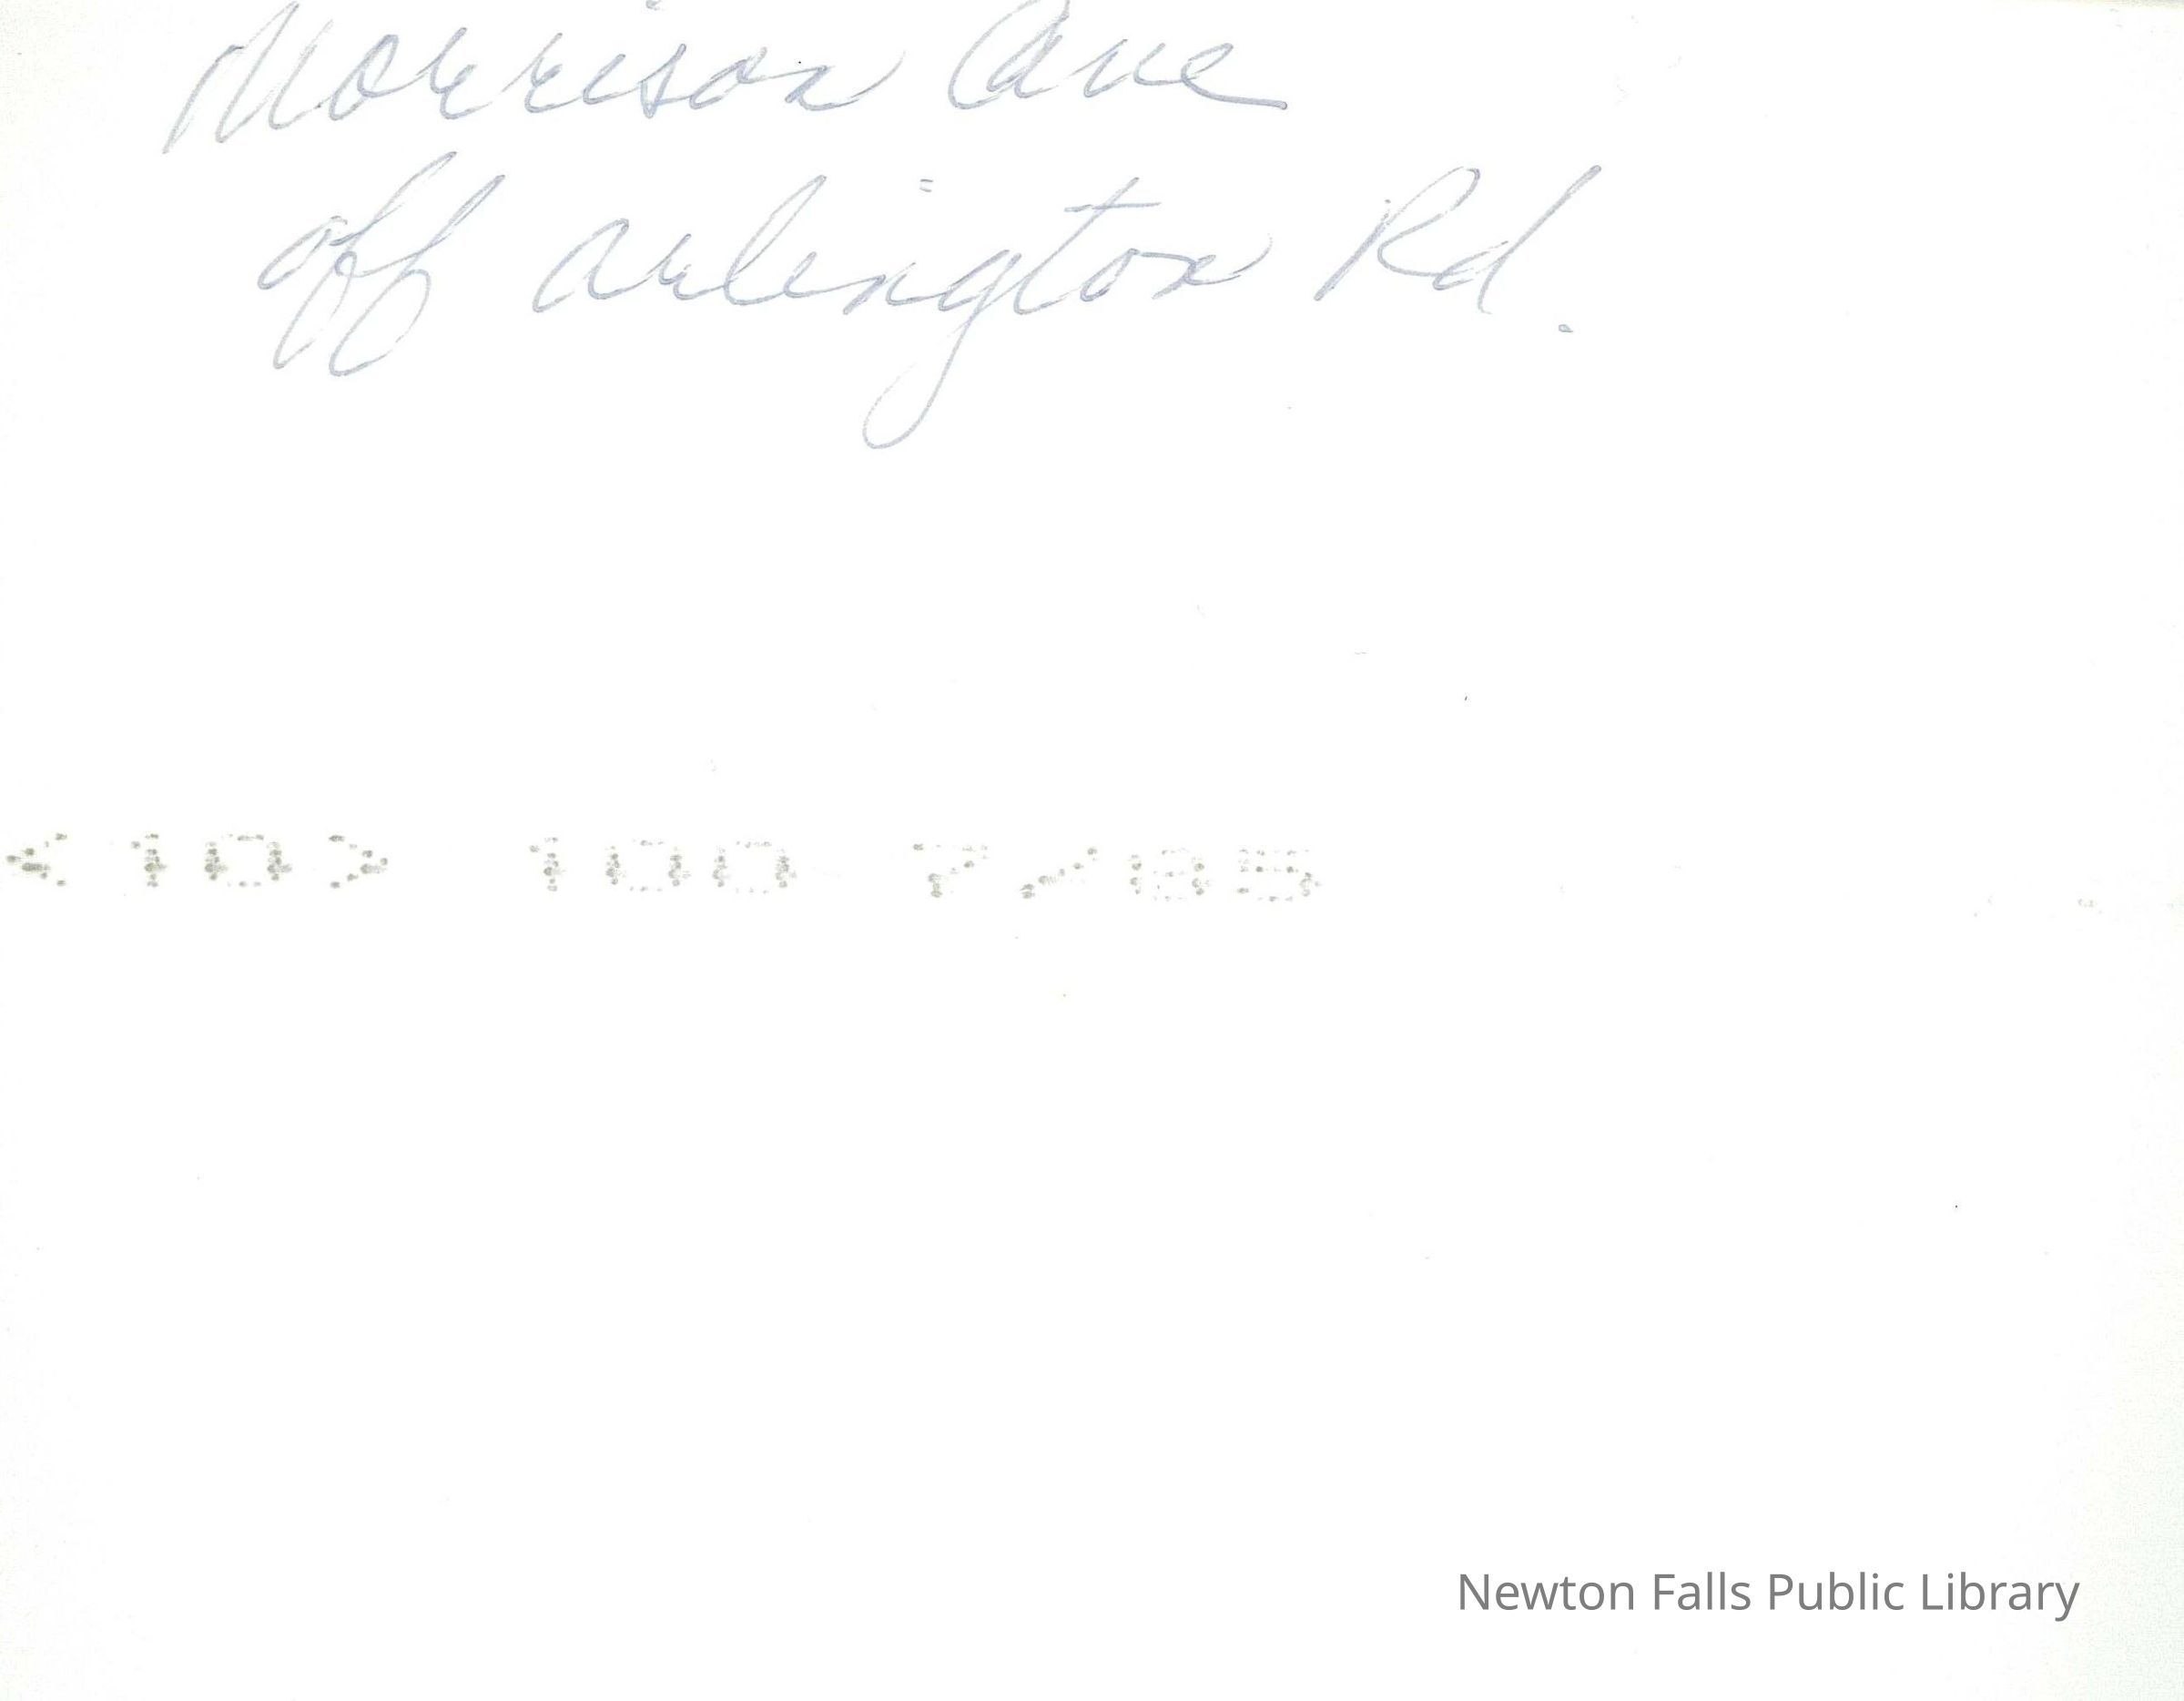 Morrison Ave
off Arlington Rd.
<10> 100 7/85
Newton Falls Public Library